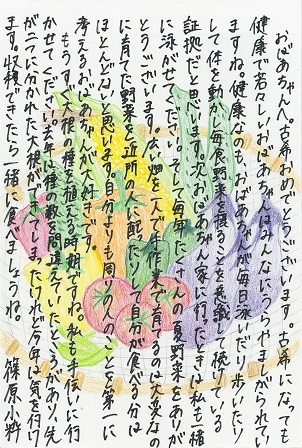 おばあちゃんへ。古希おめでとうございます。古希になっても
健康で若々しいおばあちゃんはみんなにうらやましがられて
ますね。健康なのもおばあちゃんが毎日泳いだり歩いたり
して体を動かし毎食野菜を摂ることを意識して続けている
証拠だと思います。次おばあちゃん家に行ったときは私も一緒
に泳がせてください。そして毎年たくさんの夏野菜をありが
とうございます。広い畑を一人で手作業で育てるのは大変なの
に育てた野菜を近所の人に配ったりして自分が食べる分は
ほとんどないと思います。自分よりも周りの人のことを第一に
考えるおばあちゃんが大好きです。
もうすぐ大根の種を植える時期ですね。私も手伝いに行
かせてください。去年は種の数を間違えていたところがあり、先
が二つに分かれた大根ができてしまったけれど今年は気を付け
ます。収穫できたら一緒に食べましょうね。
篠原小粋